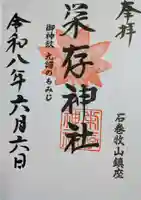 奉拝
石巻牧山鎮座
栄存神社
御神紋 九蹄のもみじ
令和八年六月六日